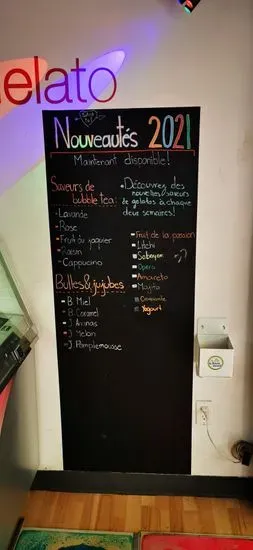 elato
Nouveautés 2021
Maintenant disponible!
Saveurs de
bubble tea:
- Lavande
- Rose
- Fruit du jaquier
- Raisin
- Cappucino
Bulles & jujubes
- B. Miel
- B. Caramel
- J. Ananas
- J. Melon
- J. Pamplemousse
Découvrez des
nouvelles saveurs
de gelatos à chaque
deux semaines!
Fruit de la passion
Litchi
Sabayon
Opéra
Amareto
Mojito
Yogourt